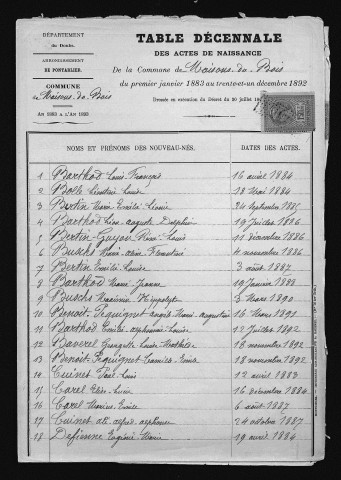 DÉPARTEMENT
du Doubs.
ARRONDISSEMENT
DE PONTARLIER.
COMMUNE
de Maisons-du-Bois
An 1883 à l'An 1893
TABLE DÉCENNALE
DES ACTES DE NAISSANCE
De la Commune de Maisons-du-Bois
du premier janvier 1883 au trente-et-un décembre 1892
Dressée en exécution du Décret du 20 juillet
NOMS ET PRÉNOMS DES NOUVEAU-NÉS. DATES DES ACTES.
1 Barthod Louis François 16 août 1884
2 Bolle Louis 18 Mai 1884
3 Bertin Marie Emilie 24 Septembre 1885
4 Barthod auguste 19 Juillet 1886
5 Bertin-Guyon Louis 11 décembre 1886
6 Buschi Marie Clémentine 4 novembre 1886
7 Bertin Emile Louise 3 août 1887
8 Barthod Marie Jeanne 19 Janvier 1888
9 Buschi Hippolyte 3 Mars 1890
10 Benoit-Pequignet augustin 16 Mars 1891
11 Barthod Emile alphonse Louis 12 Juillet 1892
12 Georgette Louise Mathilde 18 novembre 1892
13 Benoit-Pequignet 18 novembre 1892
14 Cuinet Paul Louis 12 avril 1883
15 Carel 16 décembre 1884
16 Carel Marius Emile 6 août 1887
17 Cuinet alfred alphonse 24 octobre 1887
18 Defienne Eugénie Marie 19 avril 1884